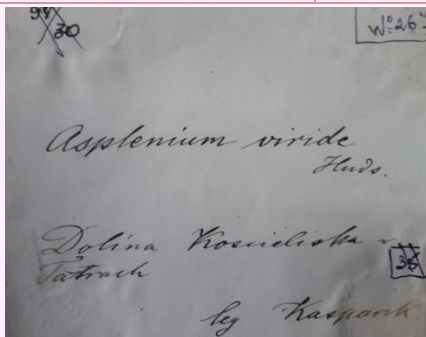 94
30
Nº 267
Asplenium viride
Huds.
Dolina Kościeliska w
Tatrach
35
leg Kasparek